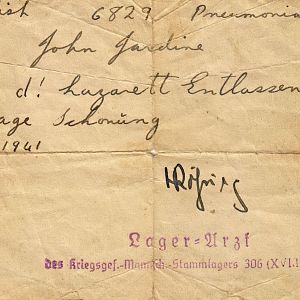 ish 6829 Pneumonia
John Jardine
d! Lazarett Entlassen
age Schonüng
1941
Lager-Arzt
des Kriegsgef.-Mannsch.-Stammlagers 306 (XVI.